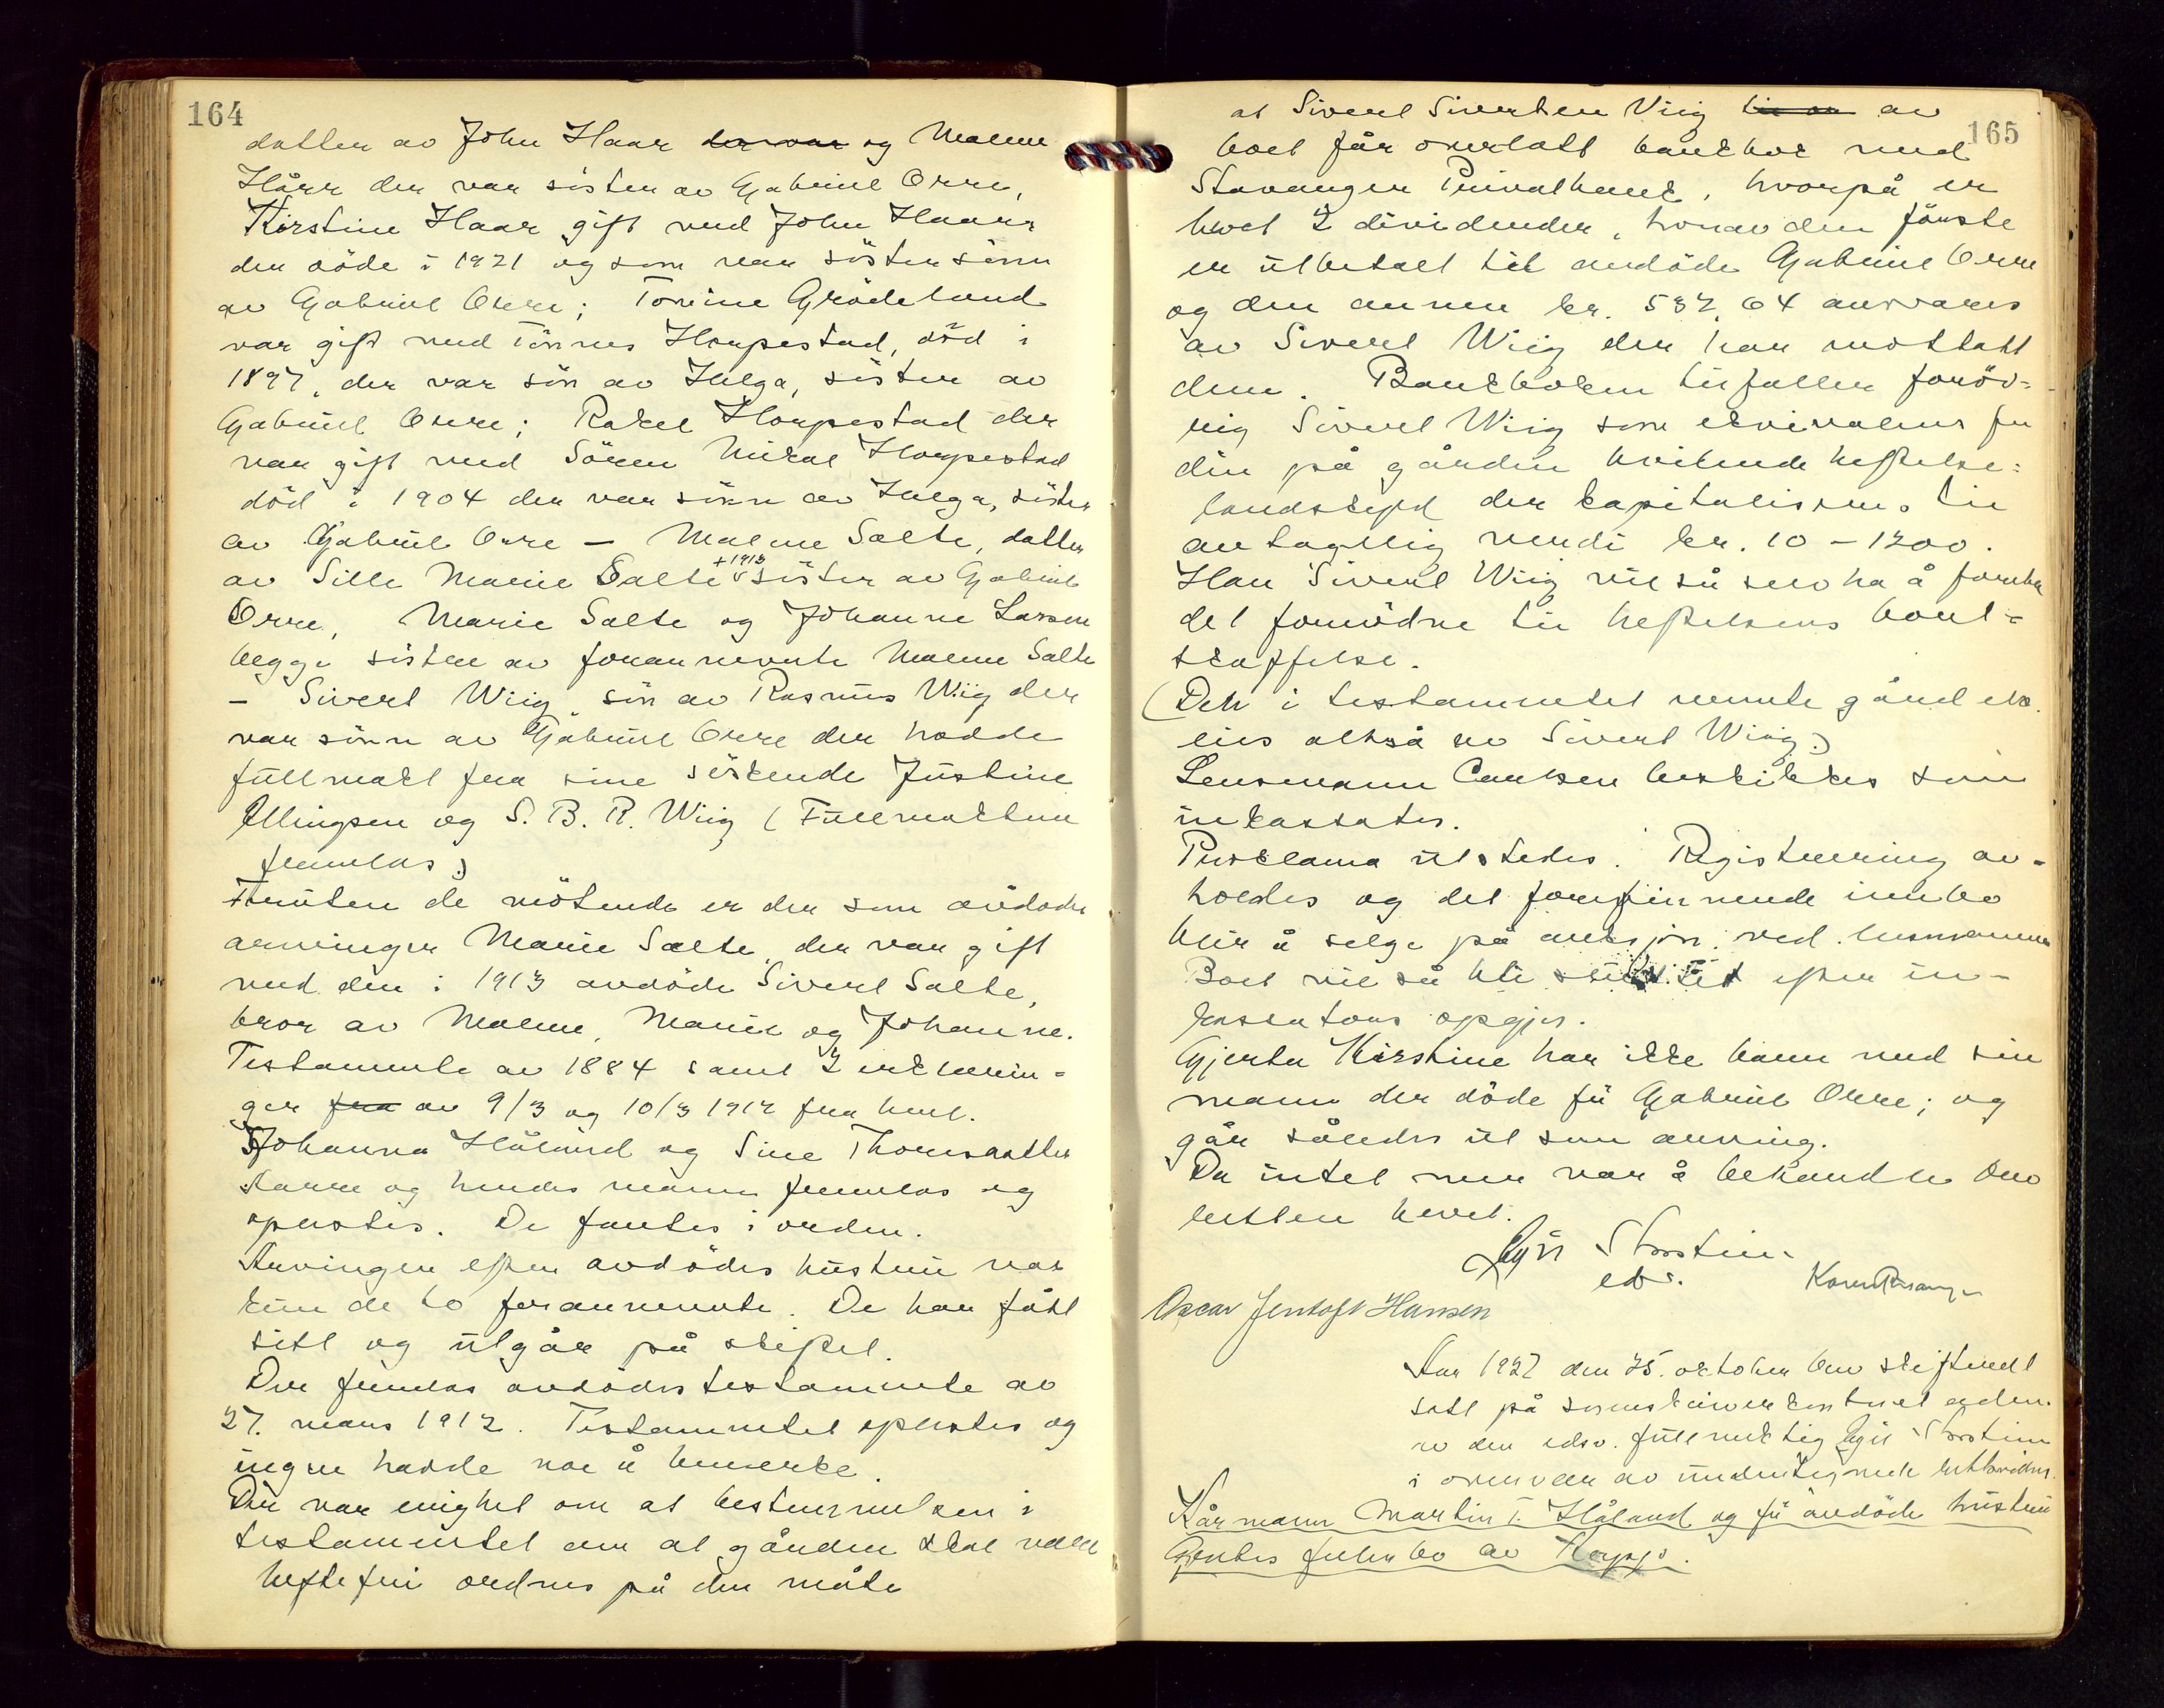 164
datter av John Haar der var og Malene
Hårr der var sister av Gabriel Orre,
Kirstine Haar gift med John Haarr
der döde i 1921 og som var söstersönn
av Gabriel Orre; Tonine Grödeland
var gift med Tönnes Horpestad, död i
1897, der var sön av Helga, sister av
Gabriel Orre; Rakel Horpestad der
var gift med Sören Mikal Horpestad
död i 1904 der var sönn av Helga, söster
av Gabriel Orre — Malene Salte, datter
av Sille Marie Salte +1913 söster av Gabriel
Orre, Marie Salte og Johanne Larsen
begge sister av forannevnte Malene Salte
— Sivert Wiig, sön av Rasmus Wiig der
var sönn av Gabriel Orre der hadde
fullmakt fra sine söskende Justine
Ellingsen og S. B. R. Wiig (Fullmakten
fremlas)
Foruten de mötende er der som avdödes
arvinger Marie Salte, der var gift
med den i 1913 avdöde Sivert Salte,
bror av Malene, Marie og Johanne.
Testamente av 1884 samt 2 erklærin=
ger fra av 9/3 og 10/3 1912 fra hml.
Johanna Håland og Sine Thomsdatter
Karre og hendes mann fremlas og
oplestes. De fantes i orden.
Arvinger efter avdödes hustru var
kun de to forannevnte. De har fått
sitt og utgår på skiftet.
Der fremlas avdödes testamente av
27. mars 1912. Testamentet oplestes og
ingen hadde noe å bemerke.
Der var enighet om at bestemmelsen i
testamentet om at gården skal være
heftefri ordnes på den måte
165
at Sivert Sivertsen Viig av
boet får overlatt bankbok med
Stavanger Privatbank, hvorpå er
hevet 2 dividender, hvorav den förste
er utbetalt til avdöde Gabriel Orre
og den annen kr. 532,64 ansvares
av Sivert Wiig der har mottatt
den. Bankboken tilfaller foröv=
rig Sivert Wiig som ekvivalens for
den på gården hvilende heftelse:
landskyld der kapitaliseres til
antagelig verdi kr. 10–1200.
Han Sivert Wiig vil så selv ha å foreta
det fornödne til heftelsens bort=
skaffelse.
(Den i testamentet nevnte gård etc.
eies altså av Sivert Wiig.)
Lensmann Carlsen beskikkes som
inkassator.
Proklama utstedes. Registrering av=
holdes og det forefinnende innbo
blir å selge på auksjon ved lensmannen
Boet vil så bli sluttet efter in-
kassators opgjör.
Gjerta Kirstine har ikke barn med sin
mann der döde för Gabriel Orre; og
går således ut som arving.
Da intet mere var å behandle blev
retten hevet.
Egil Storstein
edsv.
Oscar Jentoft Hansen
Aar 1927 den 25. oktober blev skifterett
satt på sorenskriverkontoret adm.
av den edsv. fullmektig Egil Storstein
i overvær av undertegnede rettsvidner.
Kårmann Martin T. Håland og för avdöde hustru
Gjertes felesbo av